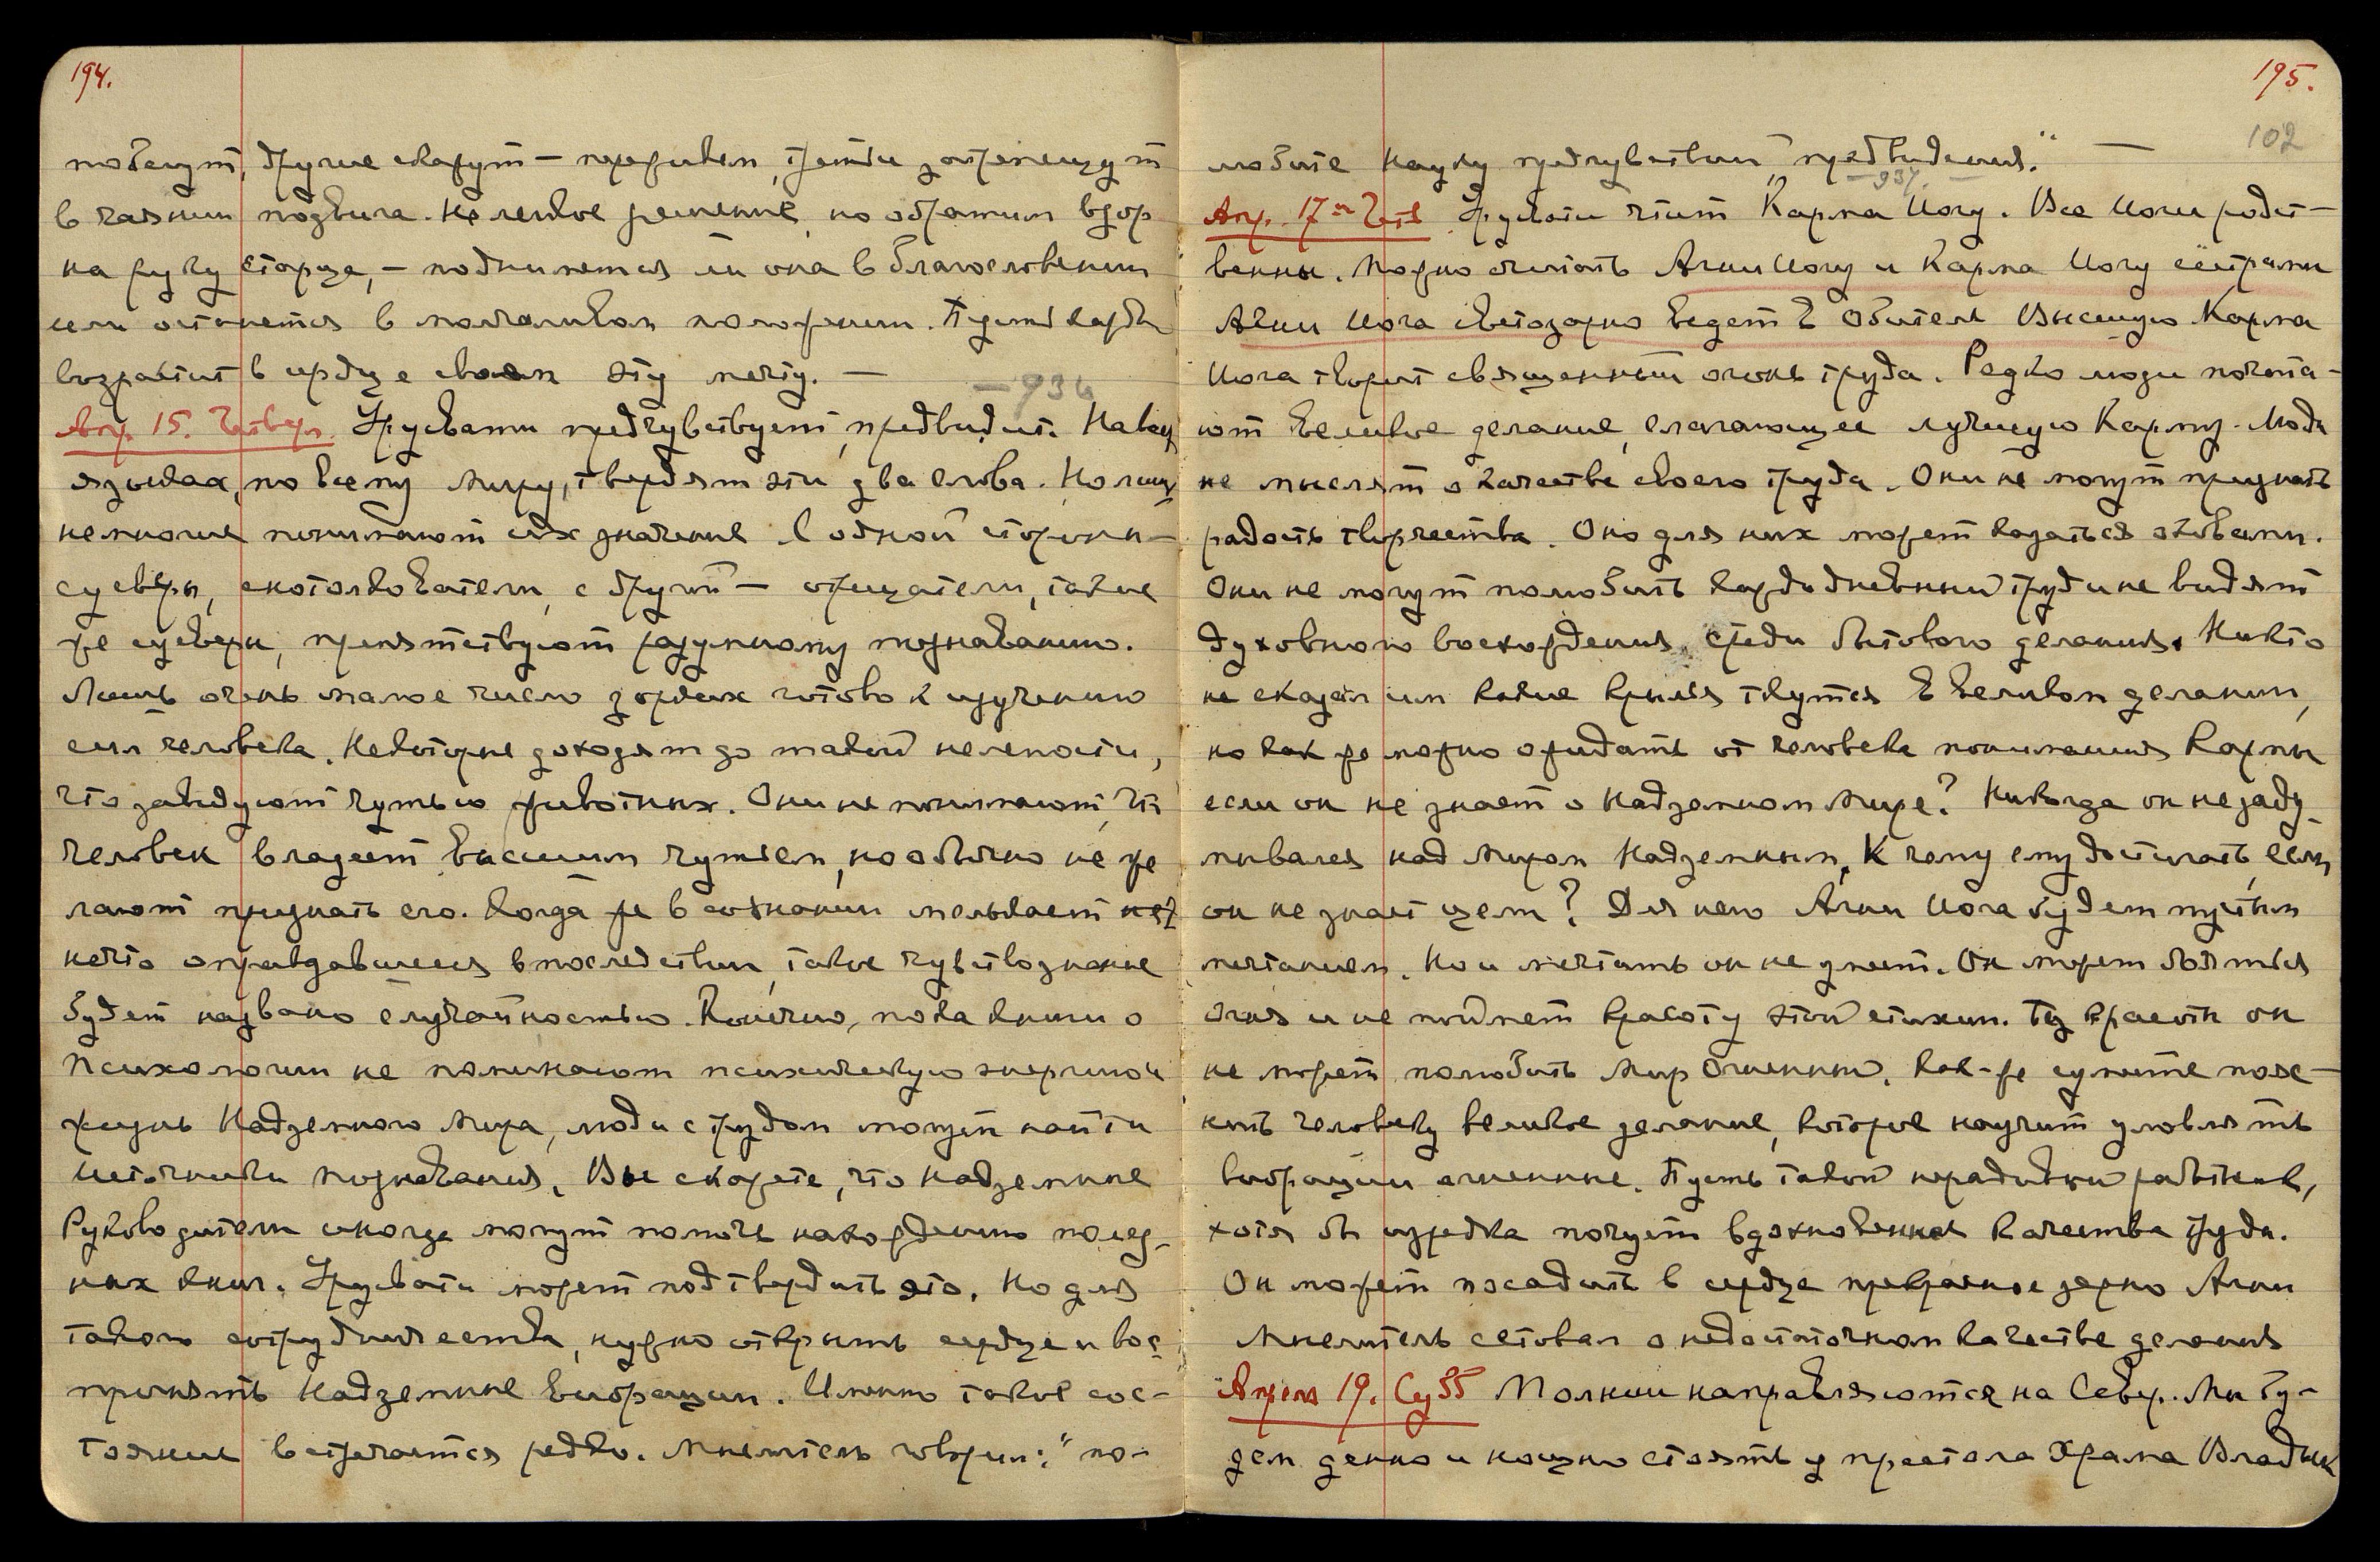 194.
побегут, другие скажут — переживем, третьи затрепещут
в чаянии подвига. Нелегкое решение, но обратим взор
на руку сторца, — поднимется ли она в благословении
или останется в молчаливом положении. Пусть каждый
возрастит в сердце своем эту мечту. —
— 936
Апр. 15. Четверг. Урусвати предчувствует, предвидит. На всех
языках, по всему миру, твердят эти два слова. Но лишь
немногие понимают их значение. С одной стороны —
суеверы, снотолкователи, с другой — отрицатели, такие
же суеверы, препятствуют разумному познаванию.
Лишь очень малое число зорких готово к изучению
сил человека. Некоторые доходят до такой нелепости,
что завидуют чутью животных. Они не понимают, что
человек владеет высшим чутьем, но обычно не же
лают признать его. Когда же в сознании мелькает
нечто оправдавшееся впоследствии, такое чувствознание
будет названо случайностью. Конечно, пока книги о
психологии не поминают психическую энергию и
жизнь Надземного Мира, люди с трудом могут найти
источники познавания. Вы скажете, что Надземные
Руководители иногда могут помочь нахождению полез-
ных книг. Урусвати может подтвердить это. Но для
такого сотрудничества, нужно открыть сердце и вос-
принять Надземные Вибрации. Именно такое сос-
тояние встречается редко. Мыслитель говорил: "по-
195.
102
любите науку предчувствий, предвидения." —
— 937. —
Апр. 17-го Четв Урусвати чтит Карма Йогу. Все Йоги родст-
венны. Можно считать Агни Йогу и Карма Йогу сестрами
Агни Йога светозарно ведет в Обитель Высшую Карма
Йога творит священный огонь труда. Редко люди почита-
ют Великое делание, слагающее лучшую Карму. Люди
не мыслят о качестве своего труда. Они не могут признать
радость творчества. Оно для них может казаться оковами.
Они не могут полюбить каждодневный труд и не видят
духовного восхождения среди бытового делания. Никто
не сказал им какие крылья ткутся в Великом делании,
но как же можно ожидать от человека понимания Кармы
если он не знает о Надземном Мире? Никогда он не заду-
мывался над Миром Надземным. К чему ему достигать, если
он не знает цели? Для него Агни Йога будет пустым
мечтанием. Но и мечтать он не умеет. Он может бояться
Огня и не поймет красоту этой стихии. Без красоты он
не может полюбить Мир Огненный. Как-же сумеете пояс-
нить человеку великое делание, которое научит уловлять
вибрации огненные. Пусть такой нерадивый работник,
хотя бы изредка почует вдохновение качества труда.
Он может посадить в сердце прекрасное зерно Агни
Мыслитель сетовал о недостаточном качестве делания
Апреля 19. Субб Молнии направляются на Север. Мы бу-
дем денно и нощно стоять у престола Храма Владык